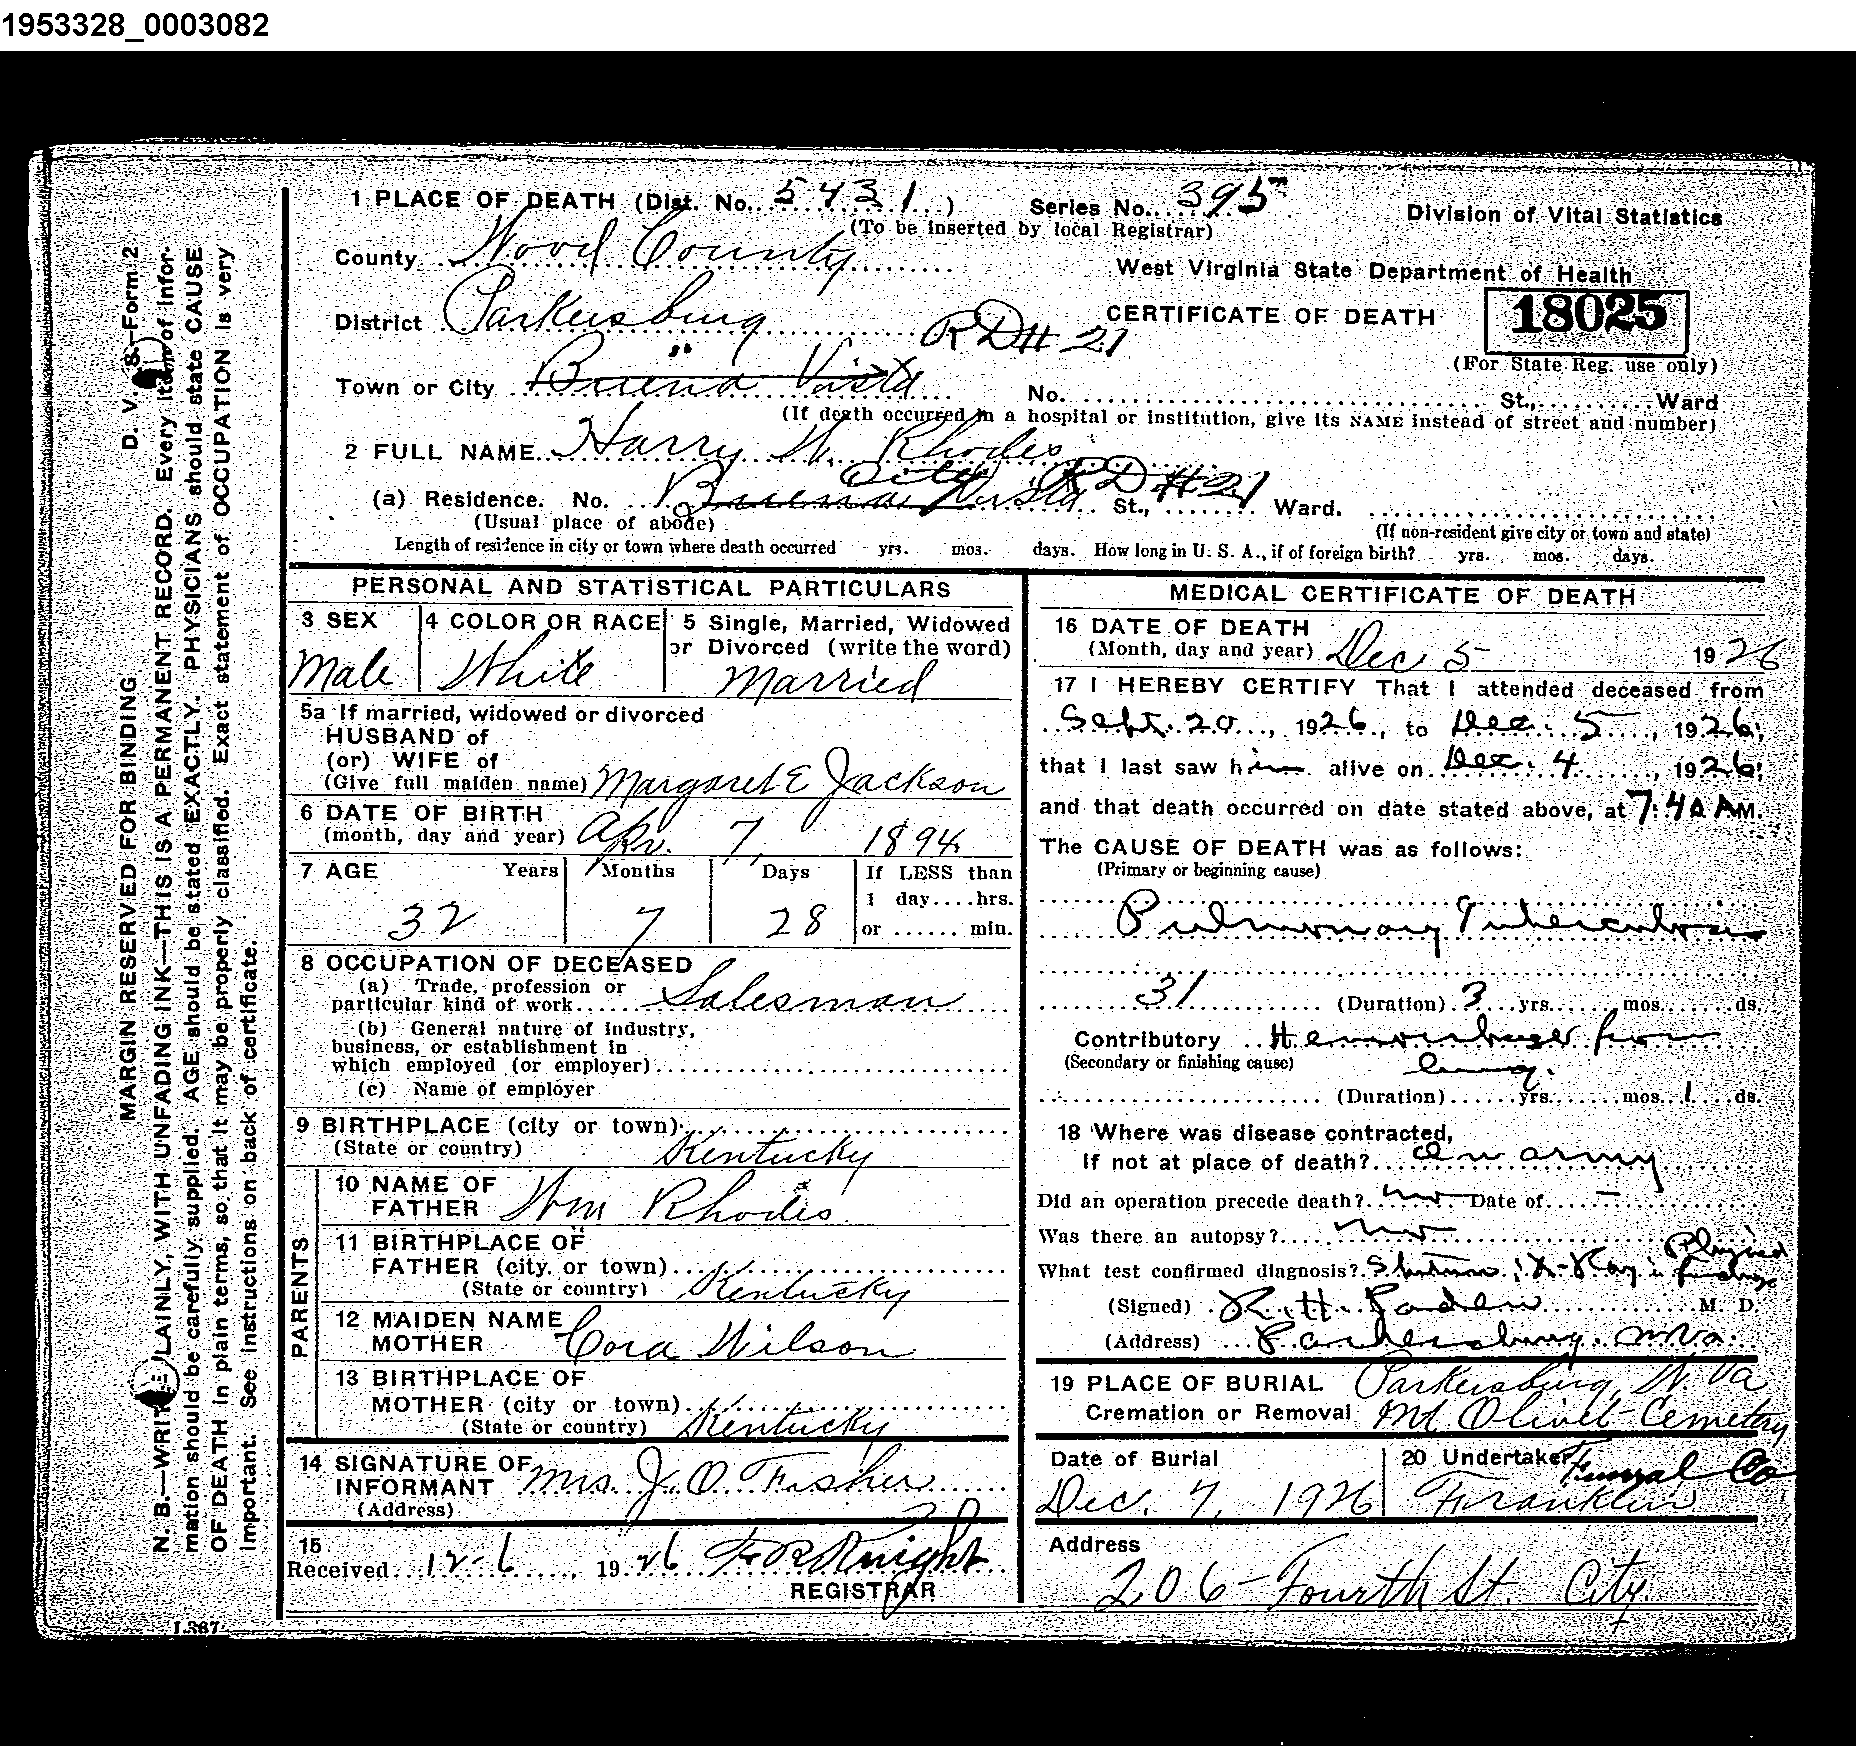 1953328_0003082
1 PLACE OF DEATH (Dist. No. 5431)
Series No. 395
Division of Vital Statistics
(To be inserted by local Registrar)
County Wood County
West Virginia State Department of Health
District Parkersburg
CERTIFICATE OF DEATH
18025
RD # 21
(For State Reg. use only)
Town or City Buena Vista
No. St., Ward
(If death occurred in a hospital or institution, give its NAME instead of street and number)
2 FULL NAME Harry W. Rhodes
City RD #21
(a) Residence. No. Buena Vista St., Ward.
(Usual place of abode)
(If non-resident give city or town and state)
Length of residence in city or town where death occurred yrs. mos. days. How long in U. S. A., if of foreign birth? yrs. mos. days.
PERSONAL AND STATISTICAL PARTICULARS
3 SEX
Male
4 COLOR OR RACE
White
5 Single, Married, Widowed
or Divorced (write the word)
Married
5a If married, widowed or divorced
HUSBAND of
(or) WIFE of
(Give full maiden name) Margaret E Jackson
6 DATE OF BIRTH
(month, day and year) Apr. 7, 1894
7 AGE Years Months Days If LESS than
1 day....hrs.
32 7 28 or ...... min.
8 OCCUPATION OF DECEASED
(a) Trade, profession or
particular kind of work Salesman
(b) General nature of industry,
business, or establishment in
which employed (or employer)
(c) Name of employer
9 BIRTHPLACE (city or town)
(State or country) Kentucky
PARENTS
10 NAME OF
FATHER Wm Rhodes
11 BIRTHPLACE OF
FATHER (city or town)
(State or country) Kentucky
12 MAIDEN NAME
MOTHER Cora Wilson
13 BIRTHPLACE OF
MOTHER (city or town)
(State or country) Kentucky
14 SIGNATURE OF
INFORMANT Mrs. J. O. Fisher
(Address)
15
Received 12-6, 1926 F R Knight
REGISTRAR
MEDICAL CERTIFICATE OF DEATH
16 DATE OF DEATH
(Month, day and year) Dec 5 1926
17 I HEREBY CERTIFY That I attended deceased from
Sept. 20, 1926, to Dec. 5, 1926;
that I last saw him alive on Dec. 4, 1926;
and that death occurred on date stated above, at 7:40 A M.
The CAUSE OF DEATH was as follows:
(Primary or beginning cause)
Pulmonary Tuberculosis
31 (Duration) 3 yrs. mos. ds.
Contributory Hemorrhage from
(Secondary or finishing cause) lung.
(Duration) yrs. mos. 1 ds.
18 Where was disease contracted,
If not at place of death? In army
Did an operation precede death? no Date of —
Was there an autopsy? no
Physical
What test confirmed diagnosis? Sputum; X-Ray & findings
(Signed) R. H. Paden M. D.
(Address) Parkersburg. W Va.
19 PLACE OF BURIAL Parkersburg, W. Va
Cremation or Removal Mt. Olivet Cemetery
Date of Burial
Dec. 7, 1926
20 Undertaker Funeral Co
Franklin
Address
206 - Fourth St. City.
D. V. S.—Form 2
MARGIN RESERVED FOR BINDING
N. B.—WRITE PLAINLY, WITH UNFADING INK—THIS IS A PERMANENT RECORD. Every item of infor-
mation should be carefully supplied. AGE should be stated EXACTLY. PHYSICIANS should state CAUSE
OF DEATH in plain terms, so that it may be properly classified. Exact statement of OCCUPATION is very
important. See instructions on back of certificate.